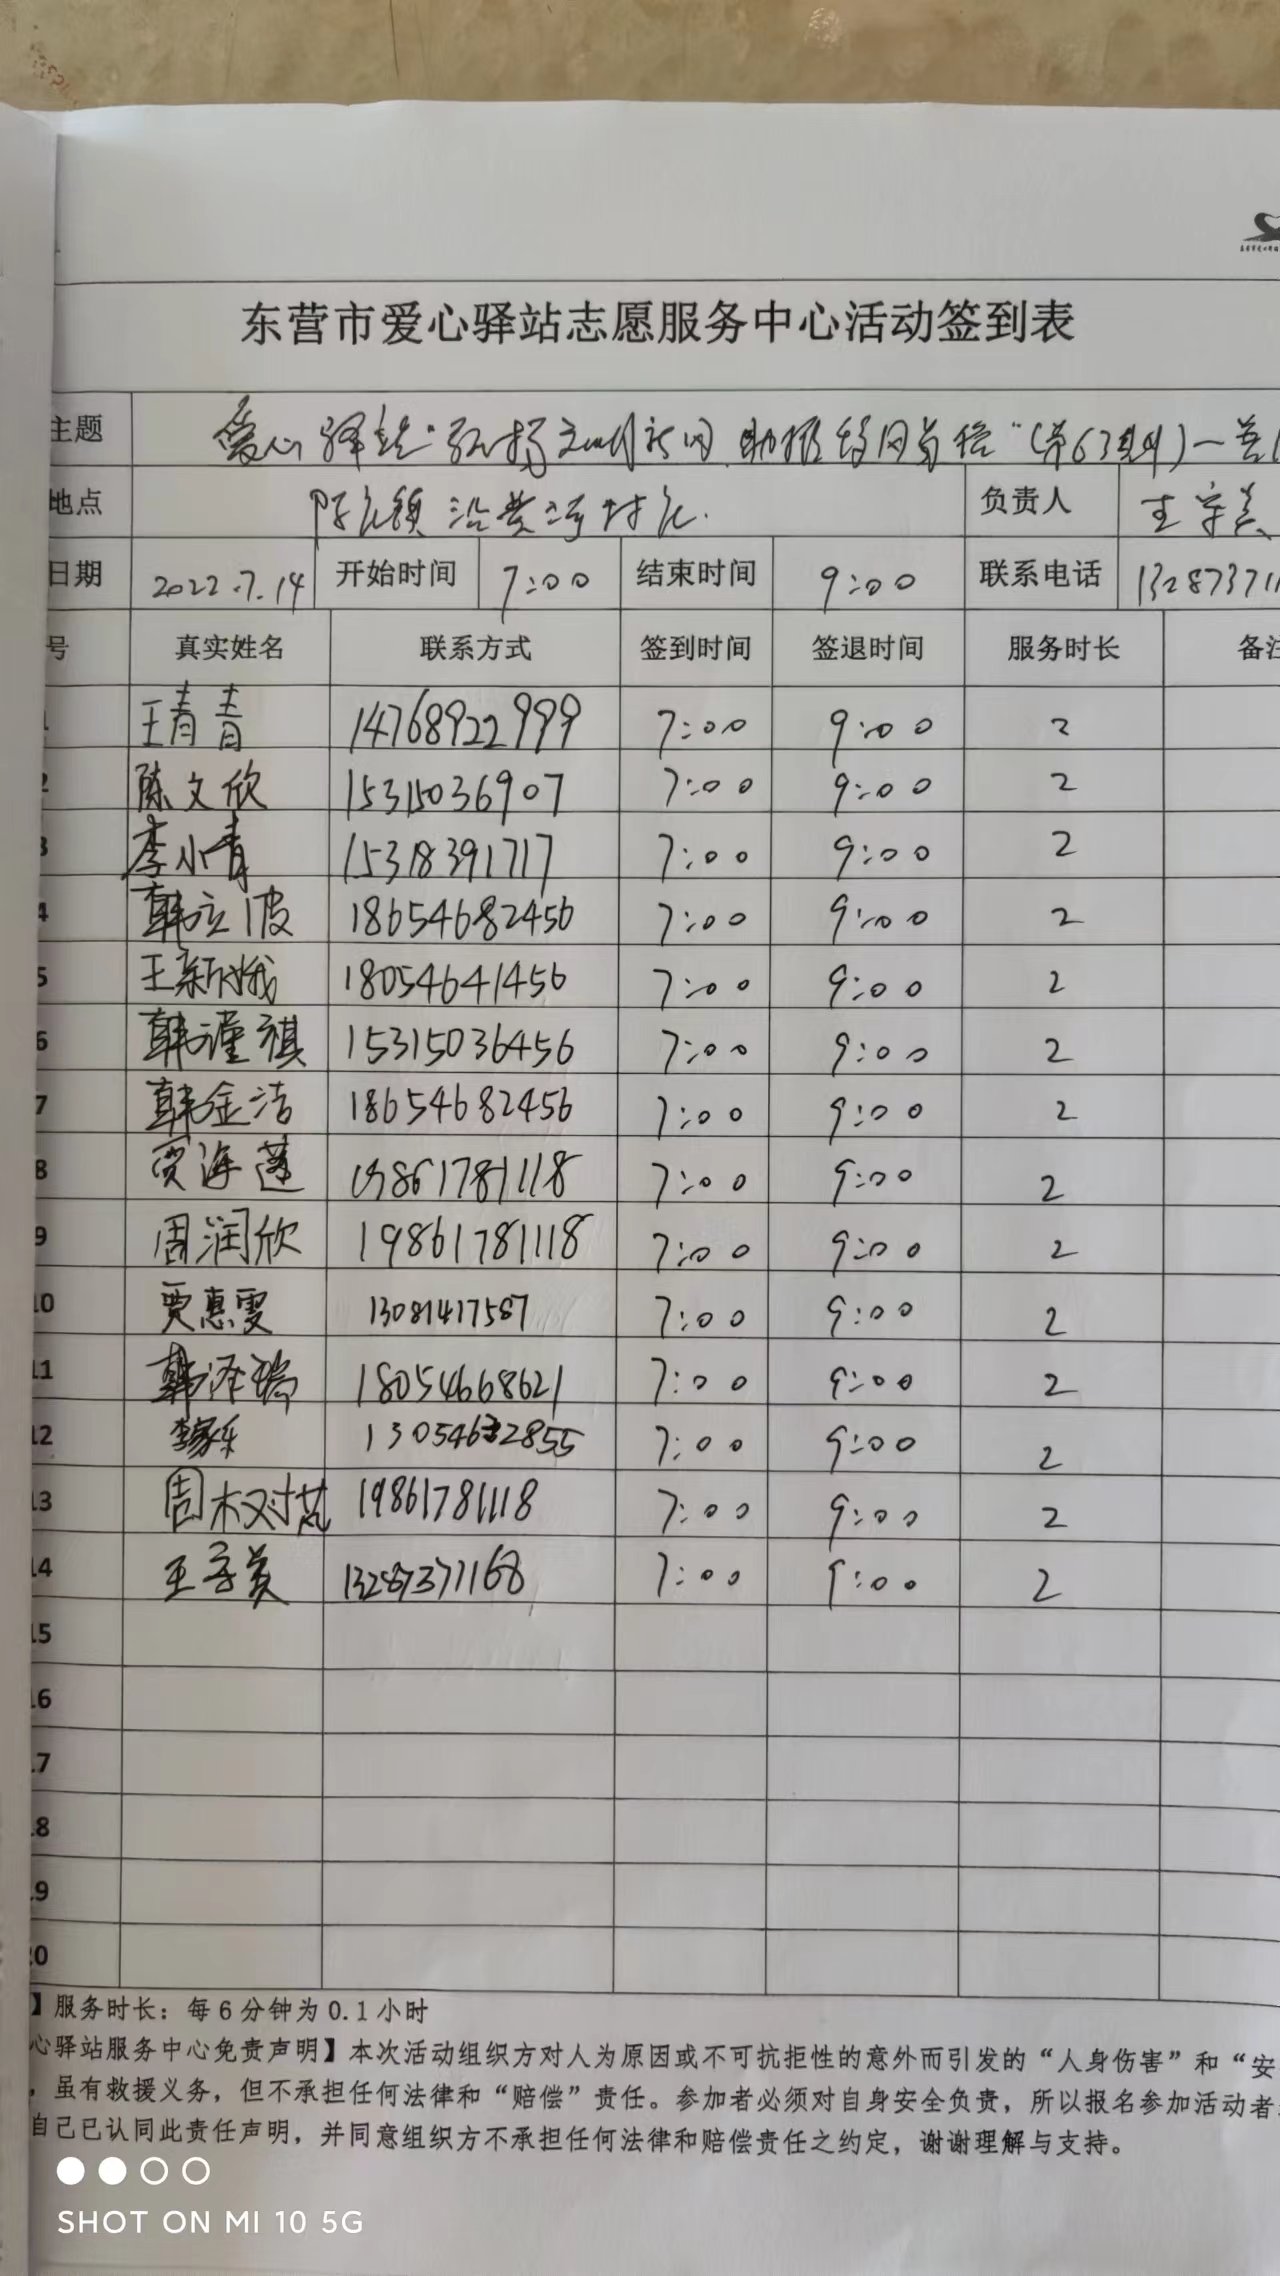 东营市爱心驿站志愿服务中心活动签到表
主题 爱心驿站"弘扬文明新风 助推
地点 陈庄镇沿黄河村庄. 负责人 王宗美
日期 2022.7.14 开始时间 7:00 结束时间 9:00 联系电话 132873711
号 真实姓名 联系方式 签到时间 签退时间 服务时长 备注
1 王青青 14768922999 7:00 9:00 2
2 陈文欣 15315036907 7:00 9:00 2
3 李小青 15318391717 7:00 9:00 2
4 韩立波 18654682456 7:00 9:00 2
5 王新娥 18054641456 7:00 9:00 2
6 韩瑾祺 15315036456 7:00 9:00 2
7 韩金洁 18654682456 7:00 9:00 2
8 贾海莲 19861781118 7:00 9:00 2
9 周润欣 19861781118 7:00 9:00 2
10 贾惠雯 13081417587 7:00 9:00 2
11 韩泽瑞 18054668621 7:00 9:00 2
12 李家乐 7:00 9:00 2
13 周树芃 19861781118 7:00 9:00 2
14 王宗美 13287371168 7:00 9:00 2
15
16
17
18
19
20
】服务时长：每6分钟为0.1小时
心驿站服务中心免责声明】本次活动组织方对人为原因或不可抗拒性的意外而引发的“人身伤害”和“安
，虽有救援义务，但不承担任何法律和“赔偿”责任。参加者必须对自身安全负责，所以报名参加活动者
自己已认同此责任声明，并同意组织方不承担任何法律和赔偿责任之约定，谢谢理解与支持。
SHOT ON MI 10 5G